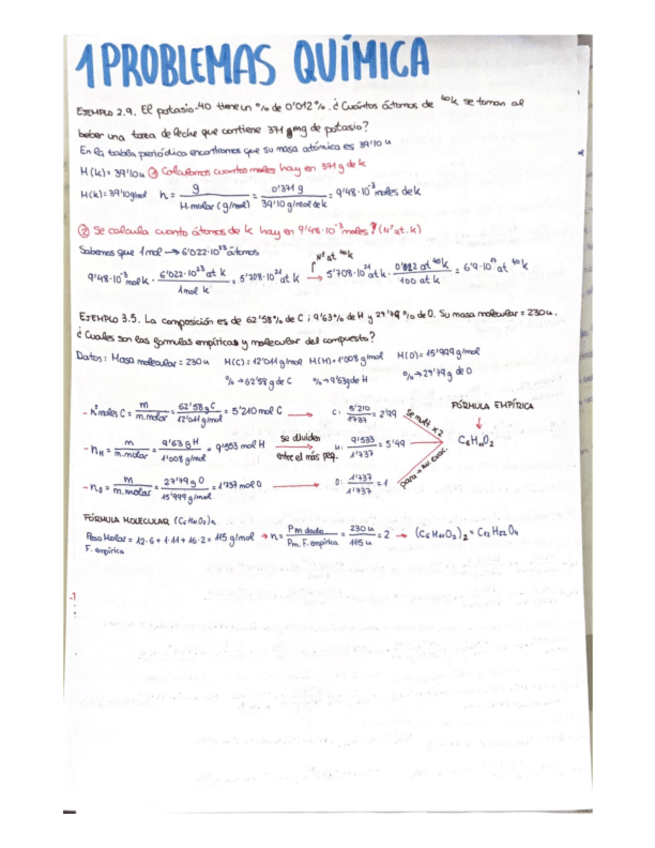 1 PROBLEMAS QUÍMICA
EJEMPLO 2.9. El potasio-40 tiene un % de 0'012%. ¿Cuántos átomos de ⁴⁰K se toman al
beber una taza de leche que contiene 371 mg de potasio?
En la tabla periódica encontramos que su masa atómica es 39'10 u
M(K) = 39'10 u ① Calculamos cuantos moles hay en 371 g de K
M(K) = 39'10 g/mol n = g / M.molar (g/mol) = 0'371 g / 39'10 g/mol de K = 9'48·10⁻³ moles de K
② Se calcula cuanto átomos de K hay en 9'48·10⁻³ moles? (Nº at. K)
Sabemos que 1 mol → 6'022·10²³ átomos
Nº at ⁴⁰K
9'48·10⁻³ mol K · 6'022·10²³ at K / 1 mol K = 5'708·10²¹ at K → 5'708·10²¹ at K · 0'012 at ⁴⁰K / 100 at K = 6'9·10¹⁷ at ⁴⁰K
EJEMPLO 3.5. La composición es de 62'58% de C; 9'63% de H y 27'79 % de O. Su masa molecular = 230 u.
¿Cuales son las formulas empíricas y molecular del compuesto?
Datos: Masa molecular = 230 u M(C) = 12'011 g/mol M(H) = 1'008 g/mol M(O) = 15'999 g/mol
% → 62'58 g de C % → 9'63 g de H % → 27'79 g de O
- nº moles C = m / m.molar = 62'58 g C / 12'011 g/mol = 5'210 mol C → C: 5'210 / 1'737 = 2'99 Se mult x2
FÓRMULA EMPÍRICA
- nH = m / m.molar = 9'63 g H / 1'008 g/mol = 9'553 mol H se dividen entre el más peq. H: 9'553 / 1'737 = 5'49 C₆H₁₁O₂
para → nº exac.
- nO = m / m.molar = 27'79 g O / 15'999 g/mol = 1'737 mol O → O: 1'737 / 1'737 = 1
FÓRMULA MOLECULAR (C₆H₁₁O₂)n
Peso Molar = 12·6 + 1·11 + 16·2 = 115 g/mol → n = Pm dada / Pm. F. empírica = 230 u / 115 u = 2 → (C₆H₁₁O₂)₂ = C₁₂H₂₂O₄
F. empírica